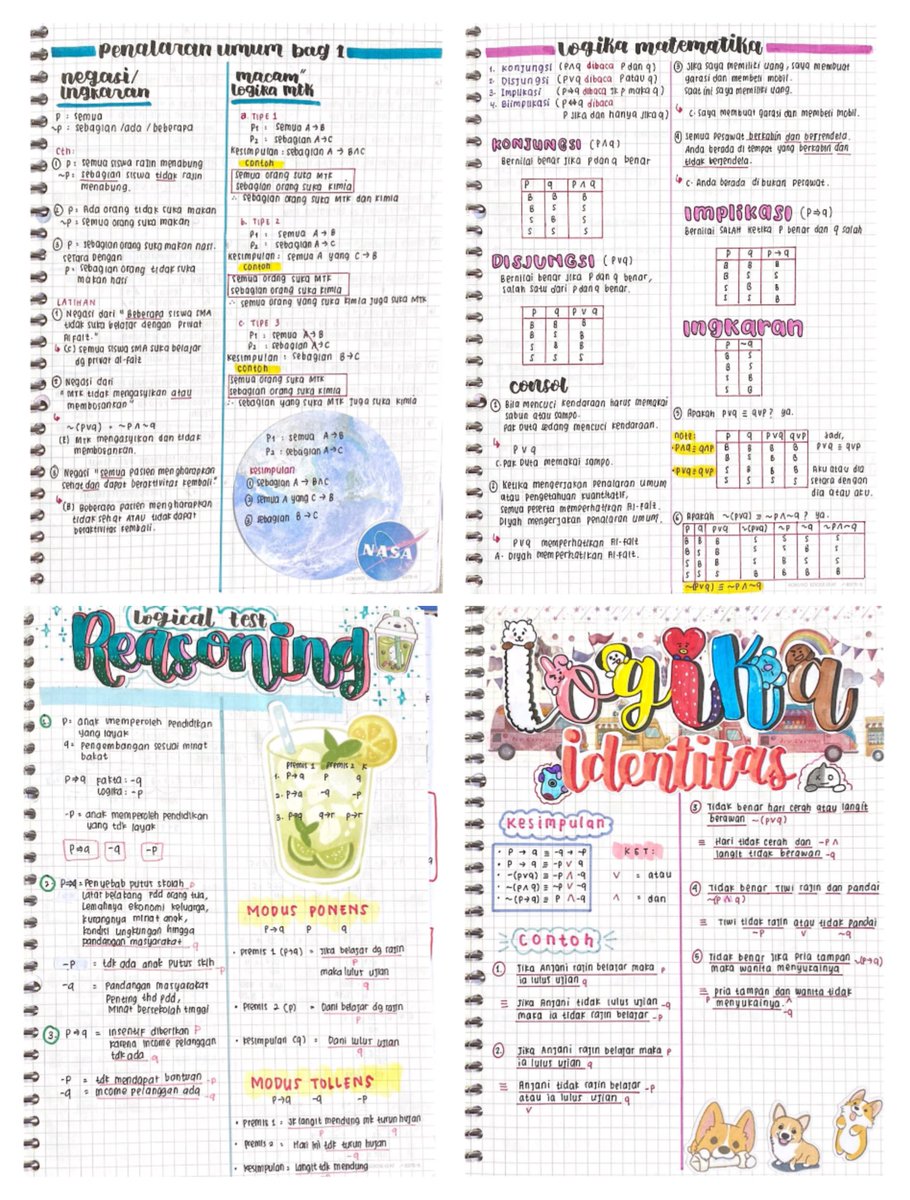 Penalaran umum bag 1
negasi/
Ingkaran
P = semua
~P = sebagian /ada / beberapa
Cth:
① P = semua siswa rajin menabung
~P = sebagian siswa tidak rajin
menabung.
② P = Ada orang tidak suka makan
~P = semua orang suka makan
③ P = sebagian orang suka makan nasi.
setara dengan
P = sebagian orang tidak suka
makan nasi
LATIHAN
① Negasi dari "Beberapa siswa SMA
tidak suka belajar dengan Privat
Al faiz."
(C) semua siswa SMA suka belajar
dg privat al-faiz
② Negasi dari
"MTK tidak mengasyikan atau
membosankan"
~(PVq) = ~P∧~q
(E) MTK mengasyikan dan tidak
membosankan.
③ Negasi "semua pasien mengharapkan
sehat dan dapat beraktivitas kembali."
(B) Beberapa pasien mengharapkan
tidak sehat ATAU tidak dapat
beraktivitas kembali.
macam"
logika mtk
a. TIPE 1
P1 : semua A→B
P2 : sebagian A→C
Kesimpulan : sebagian A → B∧C
contoh
semua orang suka MTK
sebagian orang suka kimia
∴ sebagian orang suka MTK dan kimia
b. TIPE 2
P1 : semua A→B
P2 : sebagian A→C
Kesimpulan : semua A yang C→B
contoh
semua orang suka MTK
sebagian orang suka kimia
∴ semua orang yang suka kimia juga suka MTK
c. TIPE 3
P1 : semua A→B
P2 : sebagian A→C
Kesimpulan : sebagian B→C
contoh
semua orang suka MTK
sebagian orang suka kimia
∴ sebagian yang suka MTK juga suka kimia
P1 : semua A→B
P2 : sebagian A→C
kesimpulan
① sebagian A→ B∧C
② semua A yang C→B
③ sebagian B→C
NASA
logika matematika
1. Konjungsi (P∧q dibaca P dan q)
2. Disjungsi (PVq dibaca P atau q)
3. Implikasi (P⇒q dibaca jk P maka q)
4. Biimplikasi (P⇔q dibaca
P jika dan hanya jika q)
KONJUNGSI (P∧q)
Bernilai benar jika P dan q benar
P q P∧q
B B B
B S S
S B S
S S S
DISJUNGSI (PVq)
Bernilai benar jika P dan q benar,
salah satu dari P dan q benar.
P q P V q
B B B
B S B
S B B
S S S
consol
① Bila mencuci kendaraan harus memakai
sabun atau sampo.
Pak Duta sedang mencuci kendaraan.
P V q
C. Pak Duta memakai sampo.
② Ketika mengerjakan penalaran umum
atau pengetahuan kuantitatif,
semua peserta memperhatikan Al-faiz.
Diyah mengerjakan penalaran umum.
PVq memperhatikan Al-faiz
A. Diyah memperhatikan Al-faiz.
③ Jika saya memiliki uang, saya membuat
garasi dan membeli mobil.
Saat ini saya memiliki uang.
C. Saya membuat garasi dan membeli mobil.
④ Semua Pesawat berkabin dan berjendela.
Anda berada di tempat yang berkabin dan
tidak berjendela.
C. Anda berada di bukan pesawat.
IMPLIKASI (P⇒q)
Bernilai SALAH ketika P benar dan q salah
P q P→q
B B B
B S S
S B B
S S B
Ingkaran
P ~q
B S
S B
⑤ Apakah PVq ≡ qVP ? ya.
note:
P∧q≡q∧P
PVq≡qVP
P q PVq qVP
B B B B
B S B B
S B B B
S S S S
Jadi,
PVq ≡ qVP
Aku atau dia
setara dengan
dia atau aku.
⑥ Apakah ~(PVq) ≡ ~P∧~q ? ya.
P q PVq ~(PVq) ~P ~q ~P∧~q
B B B S S S S
B S B S S B S
S B B S B S S
S S S B B B B
~(PVq) ≡ ~P∧~q
Logical test
Reasoning
1. P = anak memperoleh pendidikan
yang layak
q = pengembangan sesuai minat
bakat
P⇒q Fakta : -q
Logika : -P
-P = anak memperoleh pendidikan
yang tdk layak
P⇒q -q -P
2. P⇒q = Penyebab putus skolah P
Latar belakang Pdd orang tua,
Lemahnya ekonomi keluarga,
kurangnya minat anak,
kondisi lingkungan hingga
pandangan masyarakat q
-P = tdk ada anak putus sklh -P
-q = Pandangan masyarakat
Penting thd pdd,
Minat bersekolah tinggi
3. P⇒q = insentif diberikan P
karena income pelanggan
tdk ada q
-P = tdk mendapat bantuan -P
-q = income pelanggan ada -q
Premis 1 Premis 2 K
1. P→q P q
2. P→q -q -P
3. P→q q→r P→r
MODUS PONENS
P⇒q P q
• premis 1 (P⇒q) = Jika belajar dg rajin
P
maka lulus ujian
q
• Premis 2 (P) = Dani belajar dg rajin
P
• kesimpulan (q) = Dani lulus ujian
q
MODUS TOLLENS
P⇒q -q -P
• Premis 1 = Jk langit mendung mk turun hujan
P q
• premis 2 = Hari ini tdk turun hujan
-q
• kesimpulan = langit tdk mendung
-P
logika
identitas
Kesimpulan
• P → q ≡ -q → -P
• P → q ≡ -P V q
• ~(PVq) ≡ -P ∧ -q
• ~(P∧q) ≡ -P V -q
• ~(P→q) ≡ P ∧ -q
KET:
V = atau
∧ = dan
Contoh
1. Jika Anjani rajin belajar maka P
ia lulus ujian q
≡ Jika Anjani tidak lulus ujian -q
maka ia tidak rajin belajar -P
2. Jika Anjani rajin belajar maka P
ia lulus ujian q
≡ Anjani tidak rajin belajar -P
atau ia lulus ujian q
V
③ Tidak benar hari cerah atau langit
berawan ~(PVq)
≡ Hari tidak cerah dan -P ∧
langit tidak berawan -q
④ Tidak benar Tiwi rajin dan pandai
~(P∧q)
≡ Tiwi tidak rajin atau tidak pandai
-P V ~q
⑤ Tidak benar jika pria tampan ~(P→q)
maka wanita menyukainya
≡ pria tampan dan wanita tidak
P ∧
menyukainya.
-q